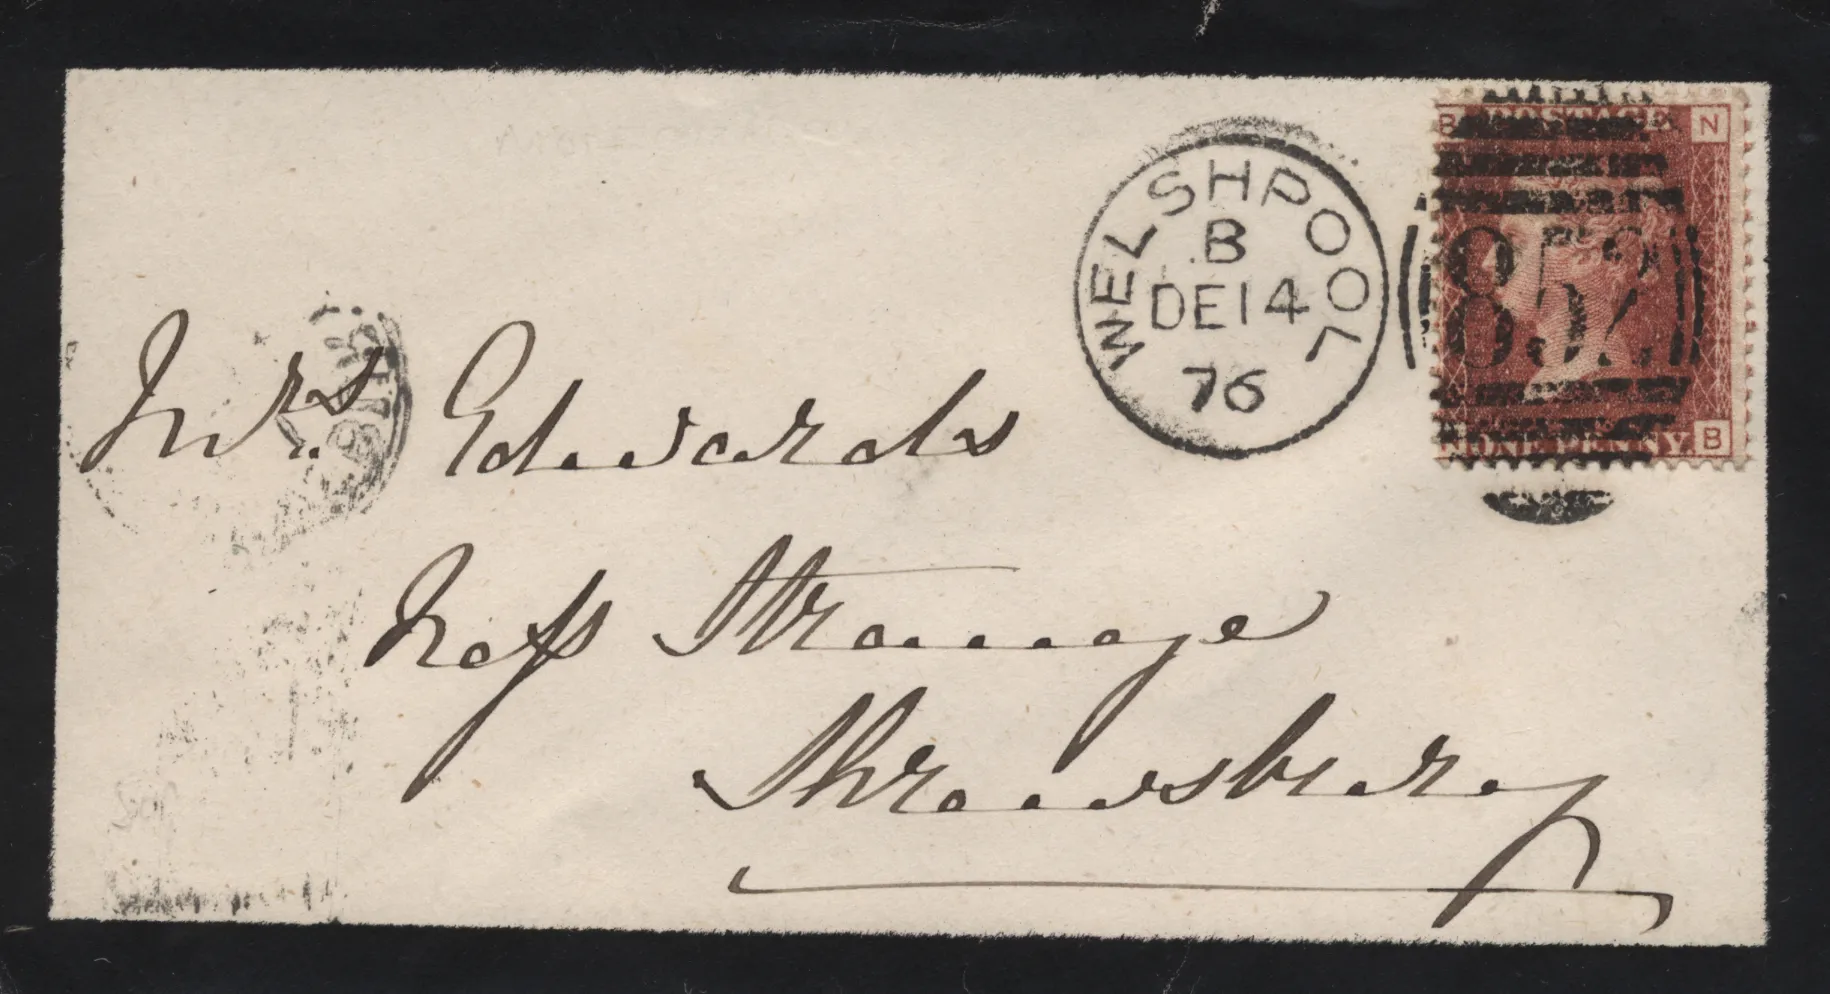 WELSHPOOL
B
DE 14
76
B POSTAGE N
852
N ONE PENNY. B
Mrs. Edwards
Ness Strange
Shrewsbury